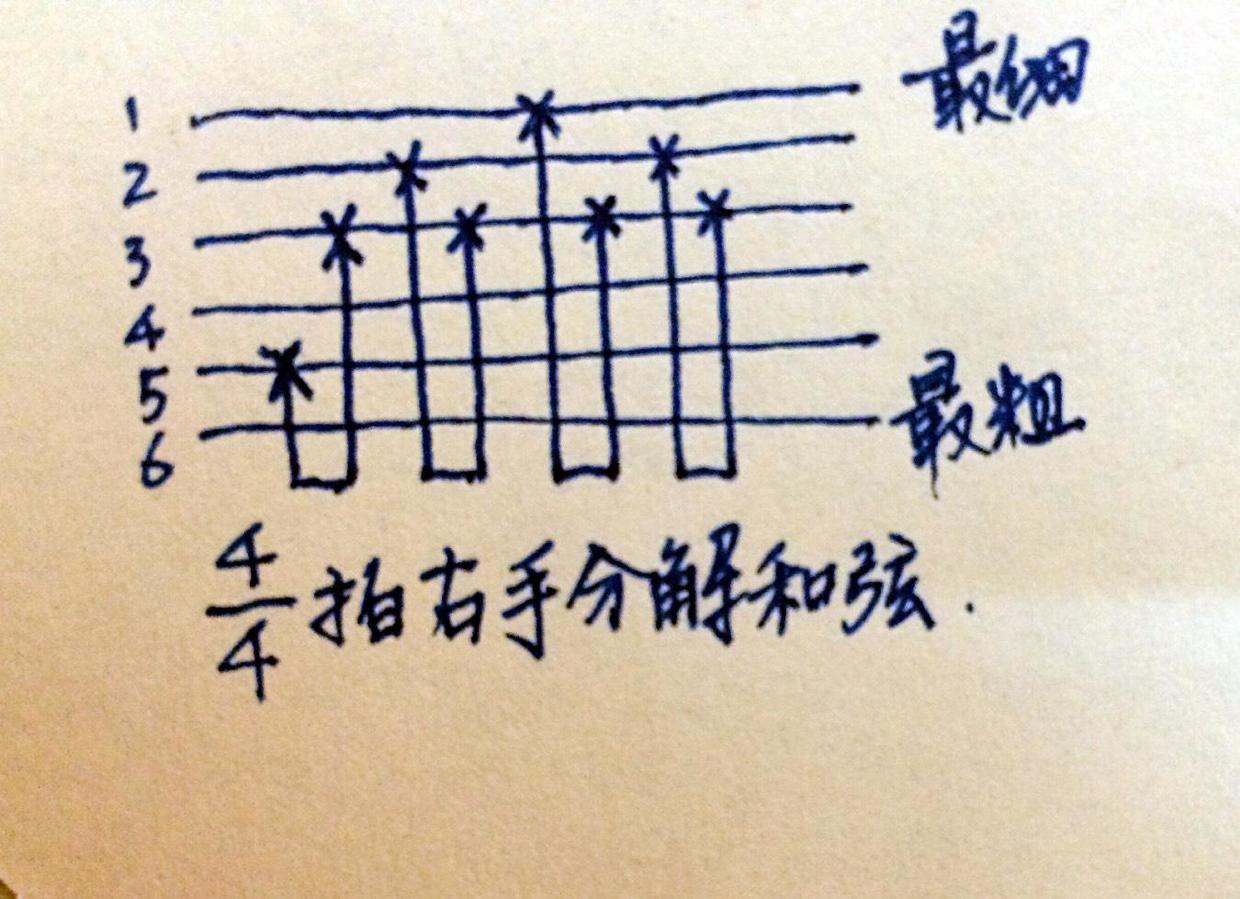 1 最细
2
3
4
5
6 最粗
4/4拍右手分解和弦.